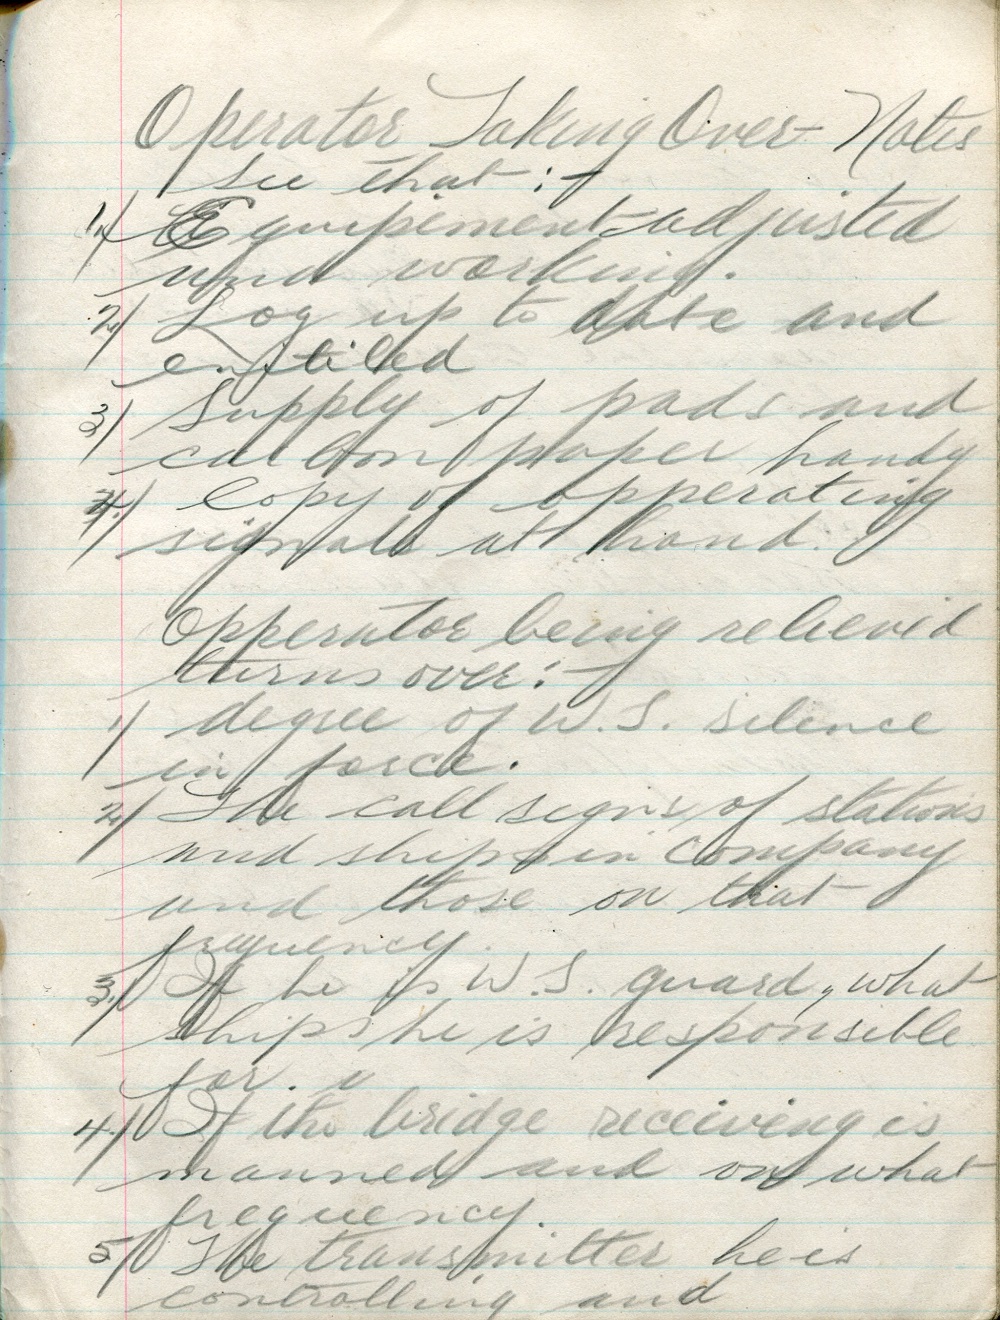 Operator Taking Over - Notes
See that :-
1/ Equipement adjusted
and working.
2/ Log up to date and
entiled
3/ Supply of pads and
carbon paper handy
4/ Copy of opperating
signals at hand.
Opperator being relieved
turns over :-
1/ degree of W.S. silence
in force.
2/ The call signs of stations
and ships in company
and those on that
frequency.
3/ If he is W.S. guard, what
ships he is responsible
for.
4/ If the bridge receiving is
manned and on what
frequency.
5/ The transmitter he is
controlling and